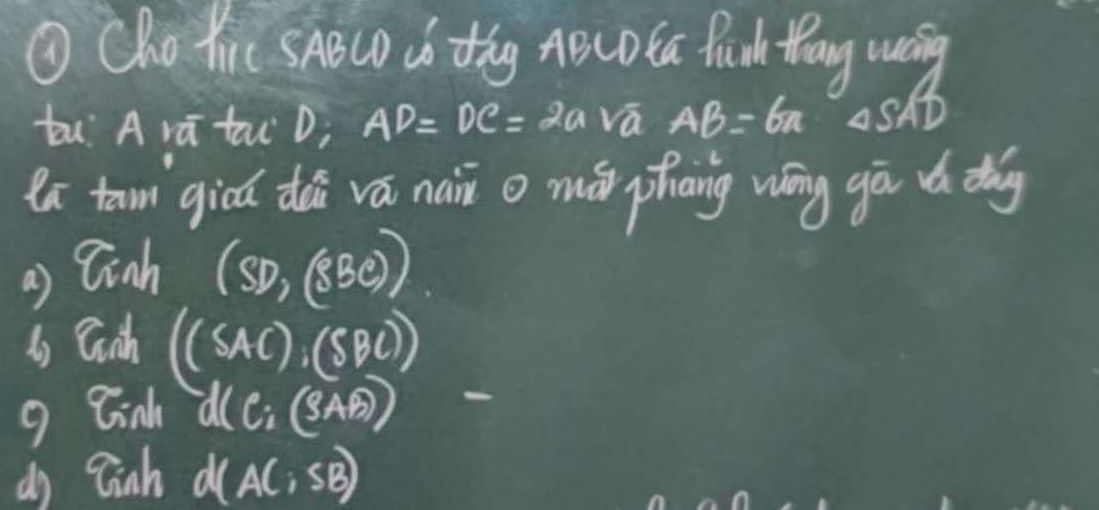 ① Cho h/c SABCD có đáy ABCD là hình thang vuông
tại A và tại D; AD = DC = 2a và AB = 6a ΔSAD
là tam giác đều và nằm ở mặt phẳng vuông góc với đáy
a) Tính (SD, (SBC)).
b) Tính ((SAC); (SBC))
c) Tính d(C; (SAB)) -
d) Tính d(AC; SB)